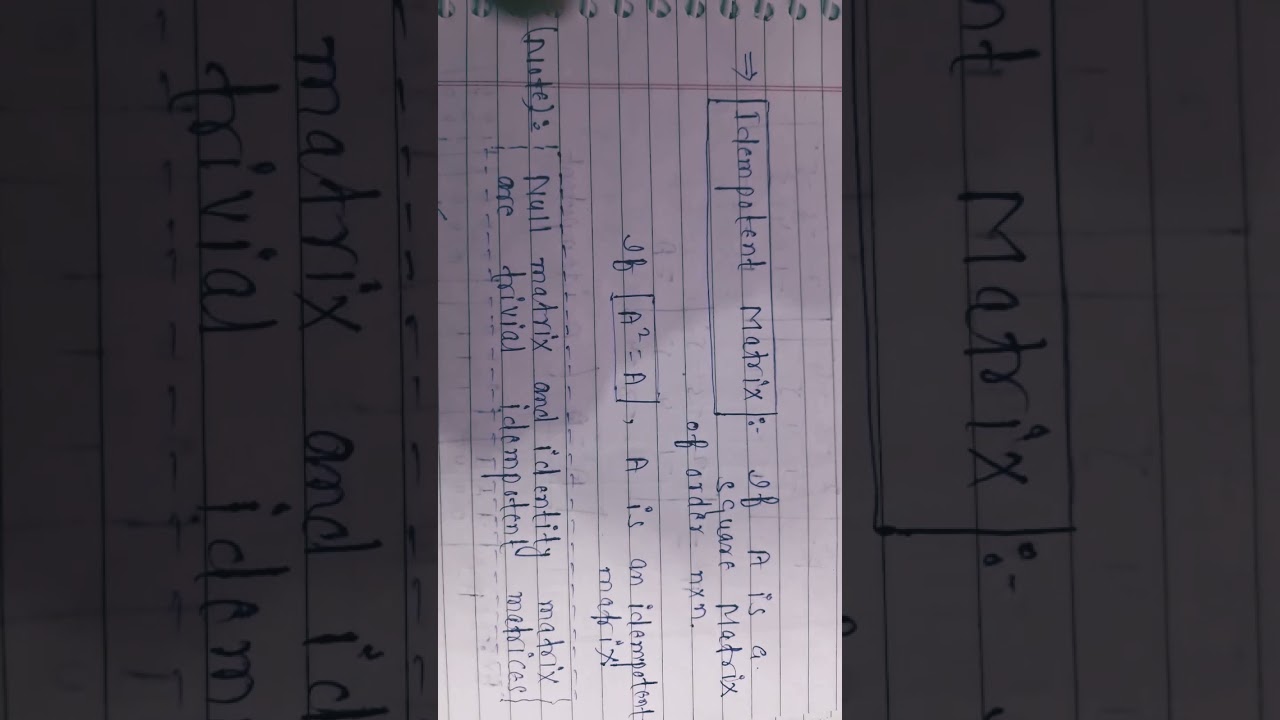 ⇒ Idempotent Matrix :- If A is a
square Matrix
of order n×n.
If [A² = A], A is an idempotent
matrix
(Note): { Null matrix and identity matrix }
{ are trivial idempotent matrices }
nt Matrix :-
matrix and id
trivial idem